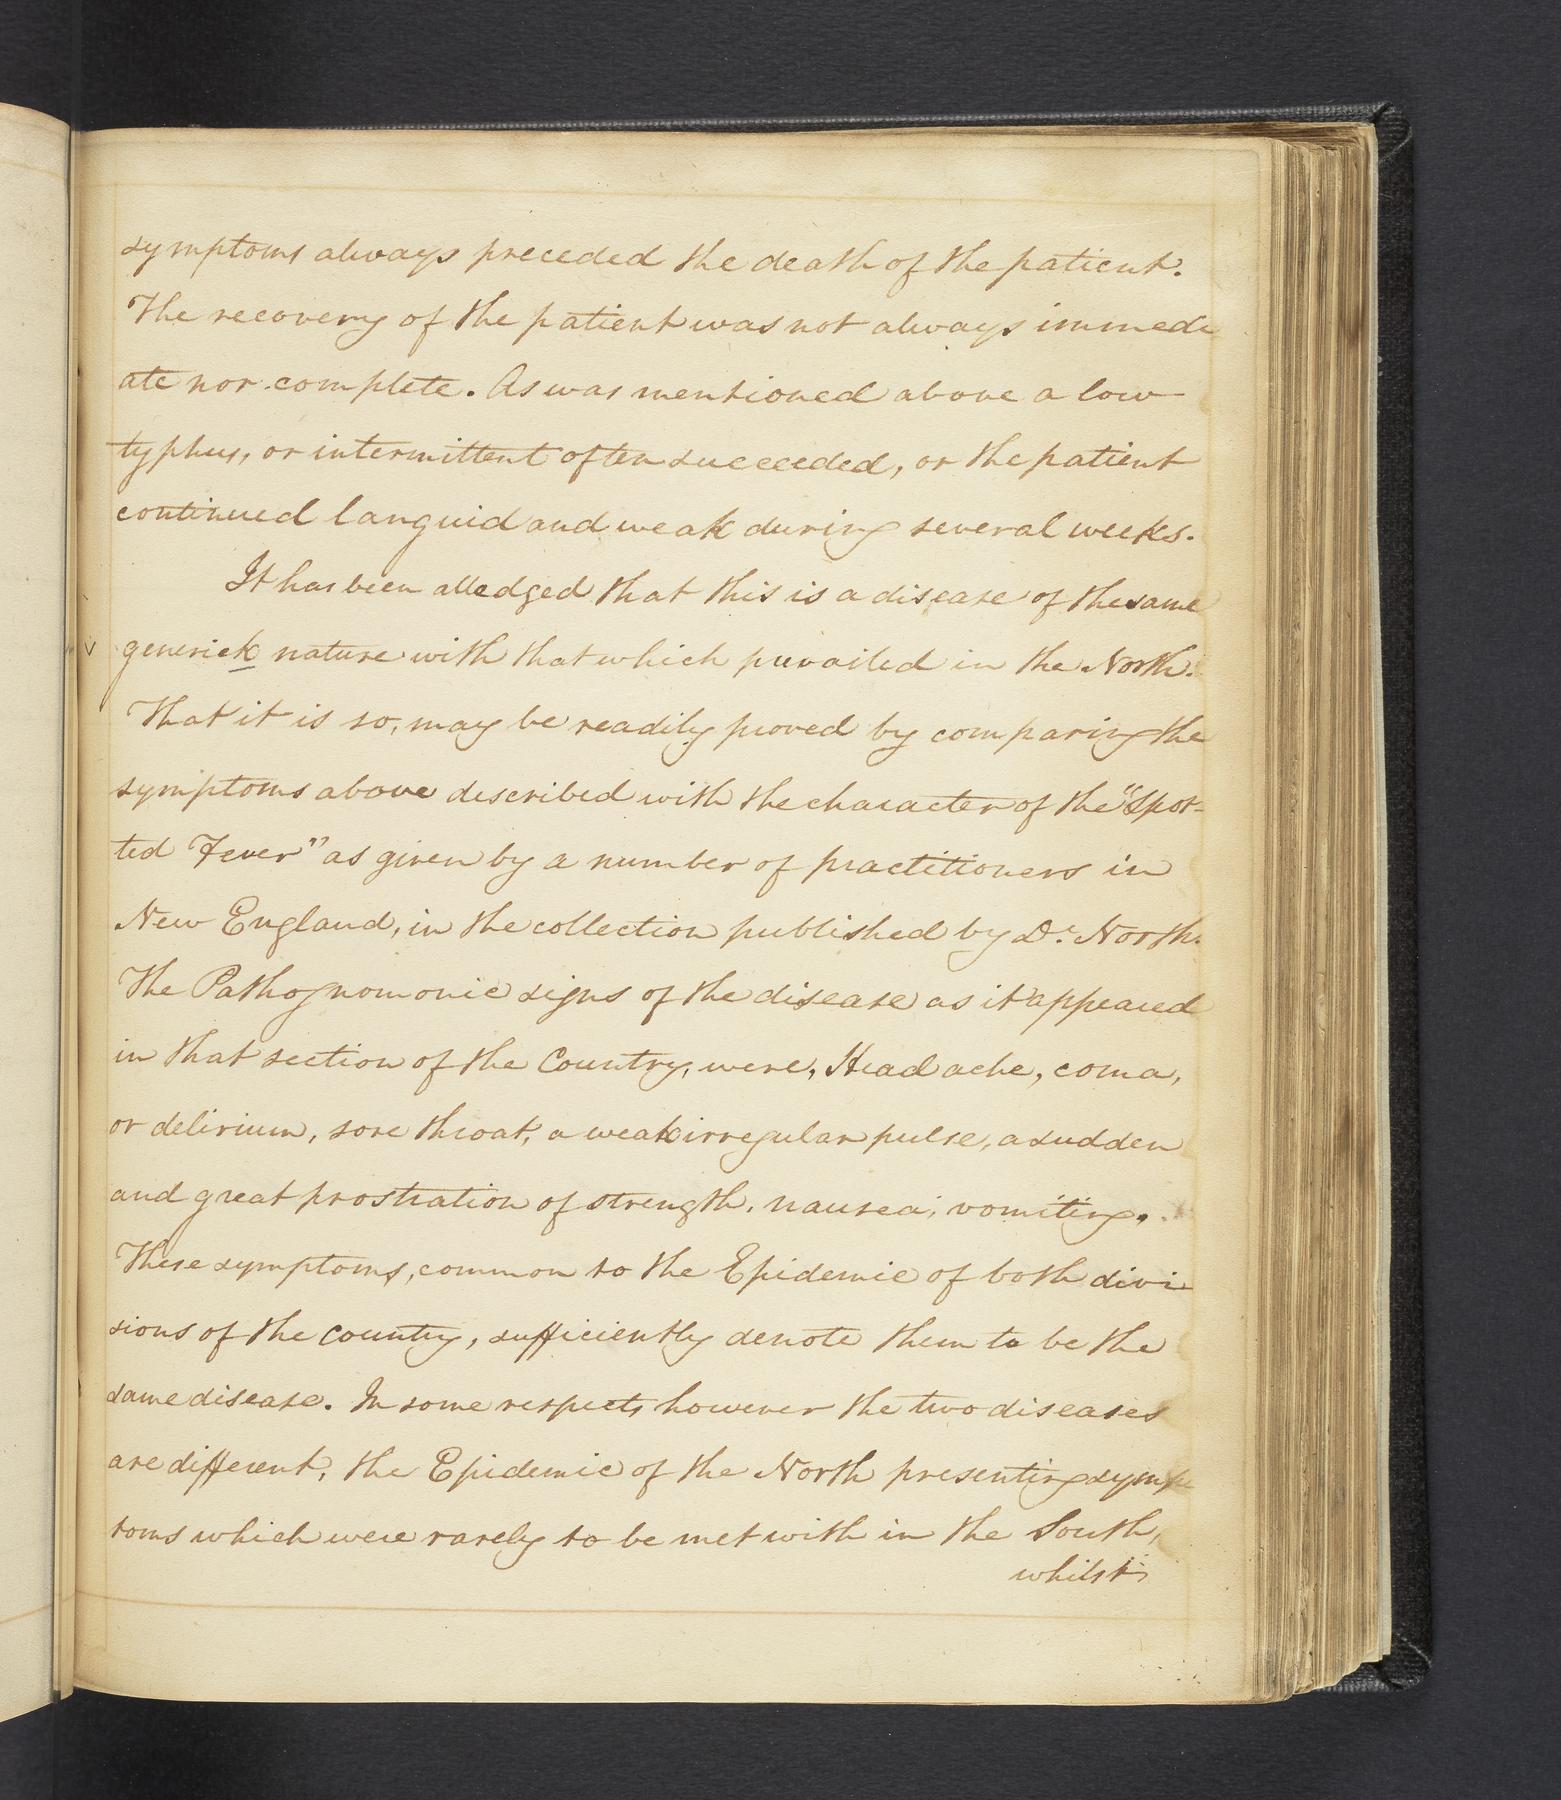 symptoms always preceded the death of the patient.
The recovery of the patient was not always immedi
ate nor complete. As was mentioned above a low
typhus, or intermittent often succeeded, or the patient
continued languid and weak during several weeks.
It has been alledged that this is a disease of the same
generick nature with that which prevailed in the North.
That it is so, may be readily proved by comparing the
symptoms above described with the character of the "Spot-
ted Fever" as given by a number of practitioners in
New England, in the collection published by Dr. North.
The Pathognomonic signs of the disease as it appeared
in that section of the Country, were, Head ache, coma,
or delirium, sore throat, a weak irregular pulse, a sudden
and great prostration of strength, nausea, vomiting.
These symptoms, common to the Epidemic of both divi
sions of the country, sufficiently denote them to be the
same disease. In some respects however the two diseases
are different, the Epidemic of the North presenting symp
toms which were rarely to be met with in the South,
whilst